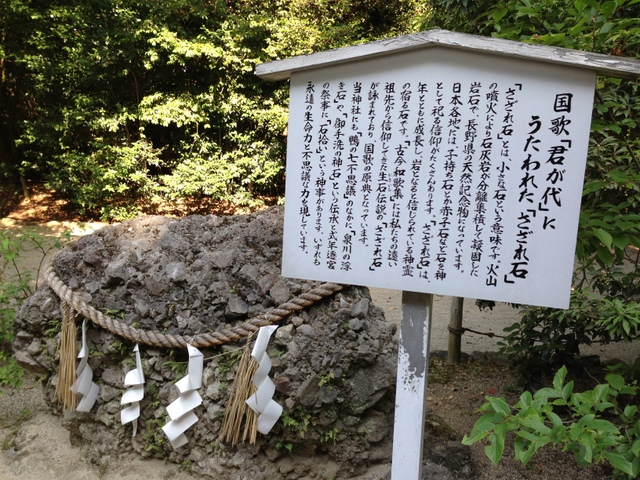 国歌「君が代」に
うたわれた「さざれ石」
「さざれ石」とは、小さな石という意味です。火山
の噴火により石灰岩が分離集積して凝固した
岩石で、長野県の天然記念物になっています。
日本各地には、子持ち石とか赤子石など石を神
として祀る信仰がたくさんあります。さざれ石は、
年とともに成長し、岩となると信じられている神霊
の宿る石です。「古今和歌集」には私たちの遠い
祖先から信仰してきた生石伝説の「さざれ石」
が詠まれており、国歌の原典となっています。
当神社にも、「鴨の七不思議」のなかに、「泉川の浮
き石」や、「御手洗の神石」という伝承と式年遷宮
の祭事に、「石拾い」という神事があります。いずれも
永遠の生命力と不思議な力を現しています。